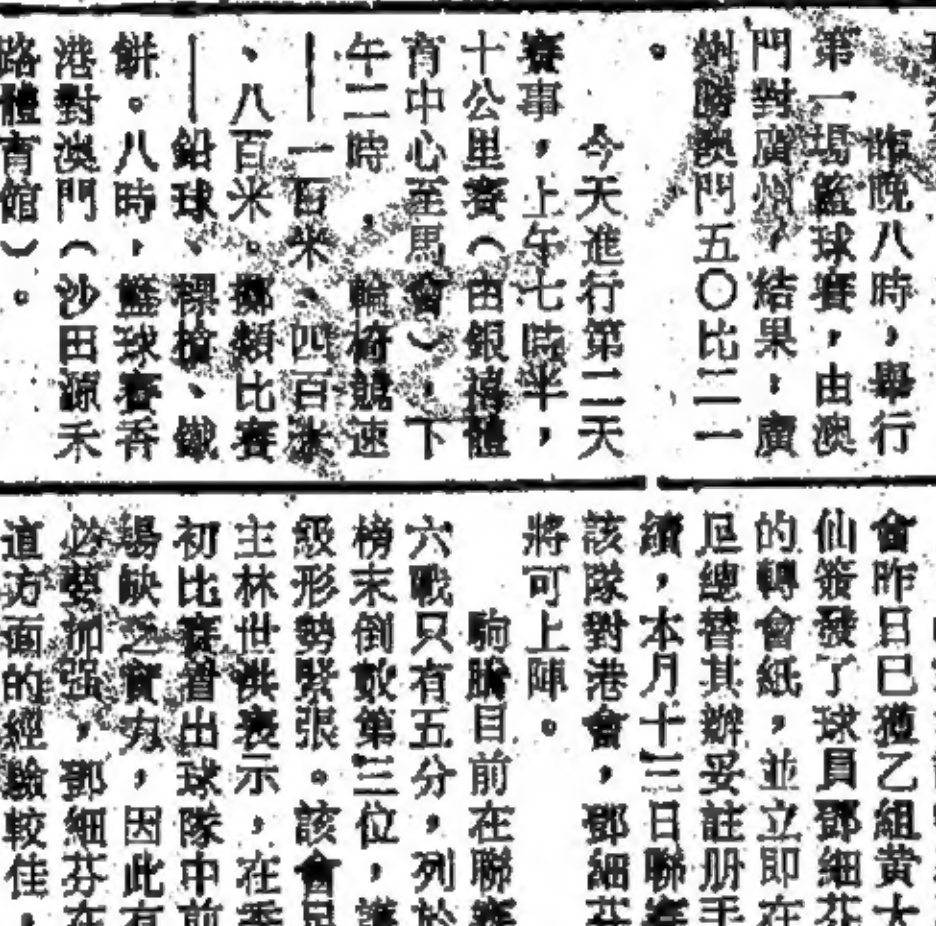 昨晚八時，舉行
第一場籃球賽，由澳
門對廣州，結果，廣
州勝澳門五〇比二一
。
今天進行第二天
賽事，上午七時半，
十公里賽（由銀禧體
育中心至馬會），下
午二時，輪椅競速
——一百米、四百米
、八百米。擲類比賽
——鉛球、標槍、鐵
餅。八時，籃球賽香
港對澳門（沙田源禾
路體育館）。
會昨日已獲乙組黃大
仙簽發了球員鄧細芬
的轉會紙，並立即在
足總替其辦妥註册手
續，本月十三日聯賽
該隊對港會，鄧細芬
將可上陣。
駒騰目前在聯賽
六戰只有五分，列於
榜末倒數第三位，護
級形勢緊張。該會足
主林世洪表示，在季
初比賽曾出球隊中前
場缺乏實力，因此有
必要加强，鄧細芬在
這方面的經驗較佳，